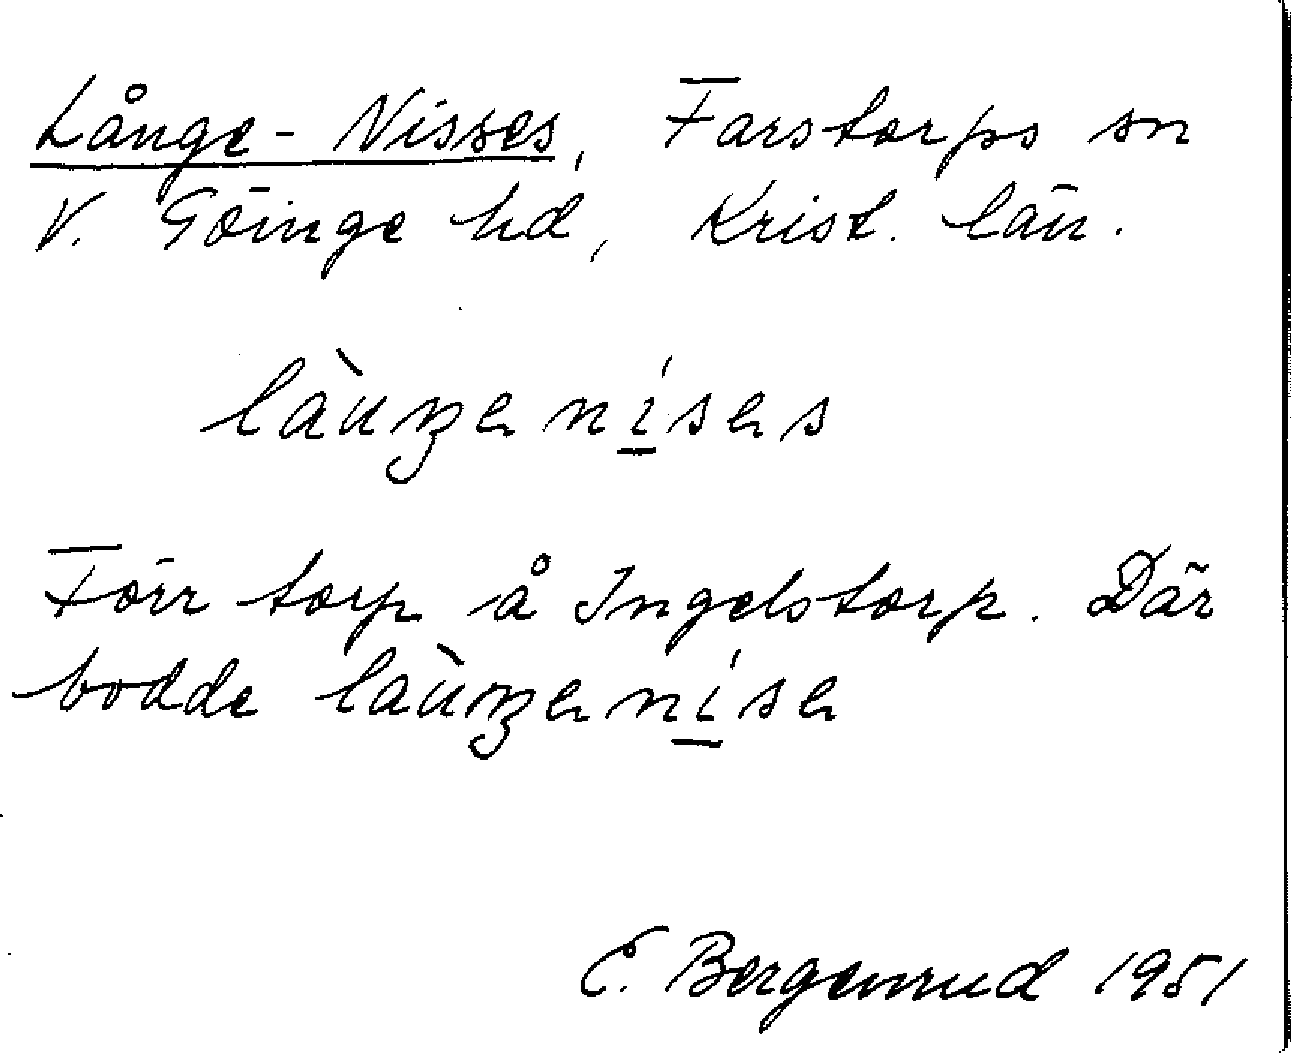 Långe-Nisses, Farstorps sn
V. Göinge hd, Krist. län.
làuŋenísəs
Förr torp å Ingelstorp. Där
bodde làuŋenísə
E. Bergenrud 1951